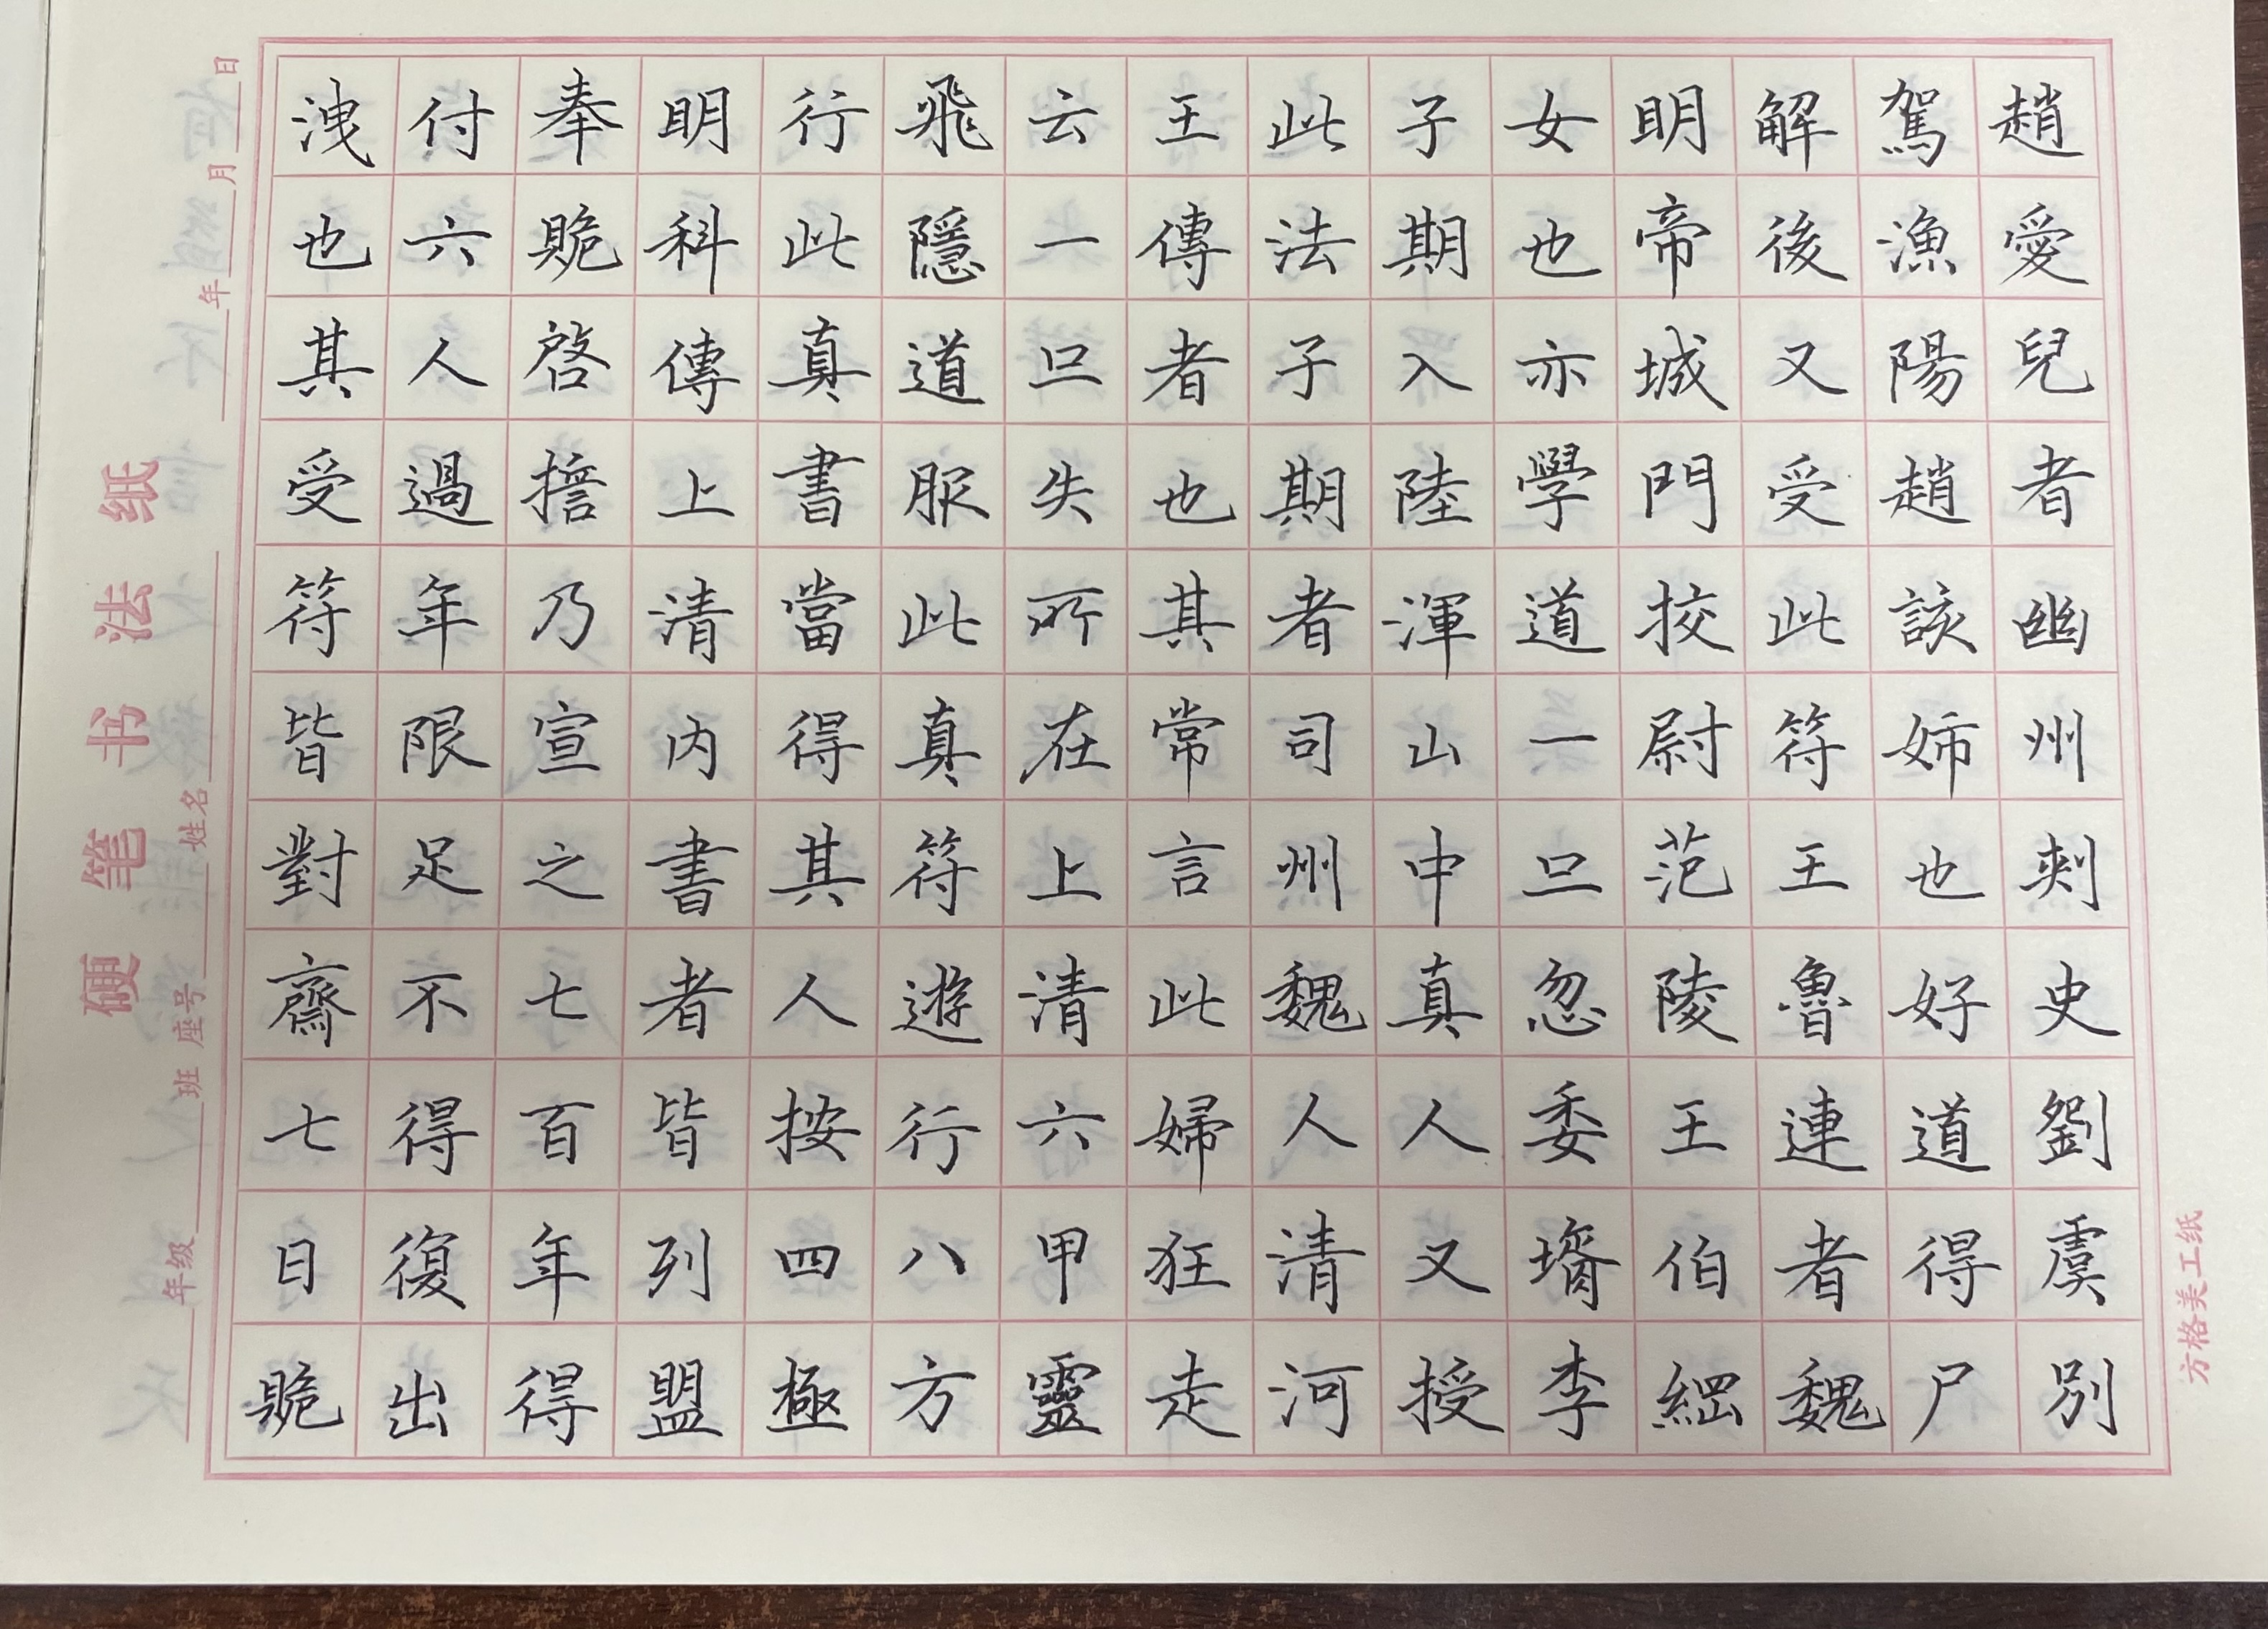 趙愛兒者幽州刾史劉虞別
駕漁陽趙該姉也好道得尸
解後又受此符王魯連者魏
明帝城門挍尉范陵王伯綑
女也亦學道一旦忽委壻李
子期入陸渾山中真人又授
此法子期者司州魏人清河
王傳者也其常言此婦狂走
云一旦失所在上清六甲靈
飛隱道服此真符遊行八方
行此真書當得其人按四極
明科傳上清内書者皆列盟
奉䝿啓擔乃宣之七百年得
付六人過年限足不得復出
洩也其受符皆對齋七日䝿
硬笔书法纸
年级 班 座号 姓名 年 月 日
方格美工纸